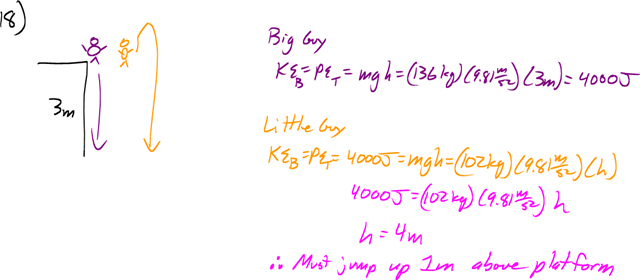 18)
3m
Big Guy
KE_B = PE_T = mgh = (136kg)(9.81 m/s²)(3m) = 4000J
Little Guy
KE_B = PE_T = 4000J = mgh = (102kg)(9.81 m/s²)(h)
4000J = (102kg)(9.81 m/s²) h
h = 4m
∴ Must jump up 1m above platform